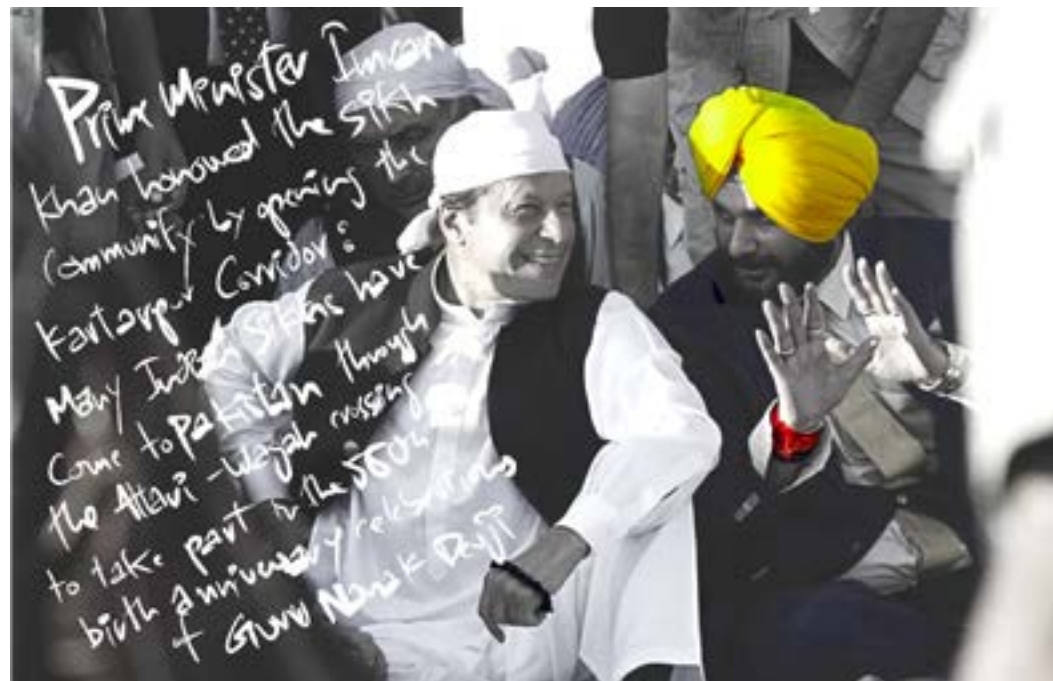 Prime Minister Imran
Khan honoured the Sikh
Community by opening the
Kartarpur Corridor :
Many Indian Sikhs have
Come to Pakistan through
the Attari - Wagah crossing
to take part in the 550th
birth anniversary celebrations
of Guru Nanak Devji